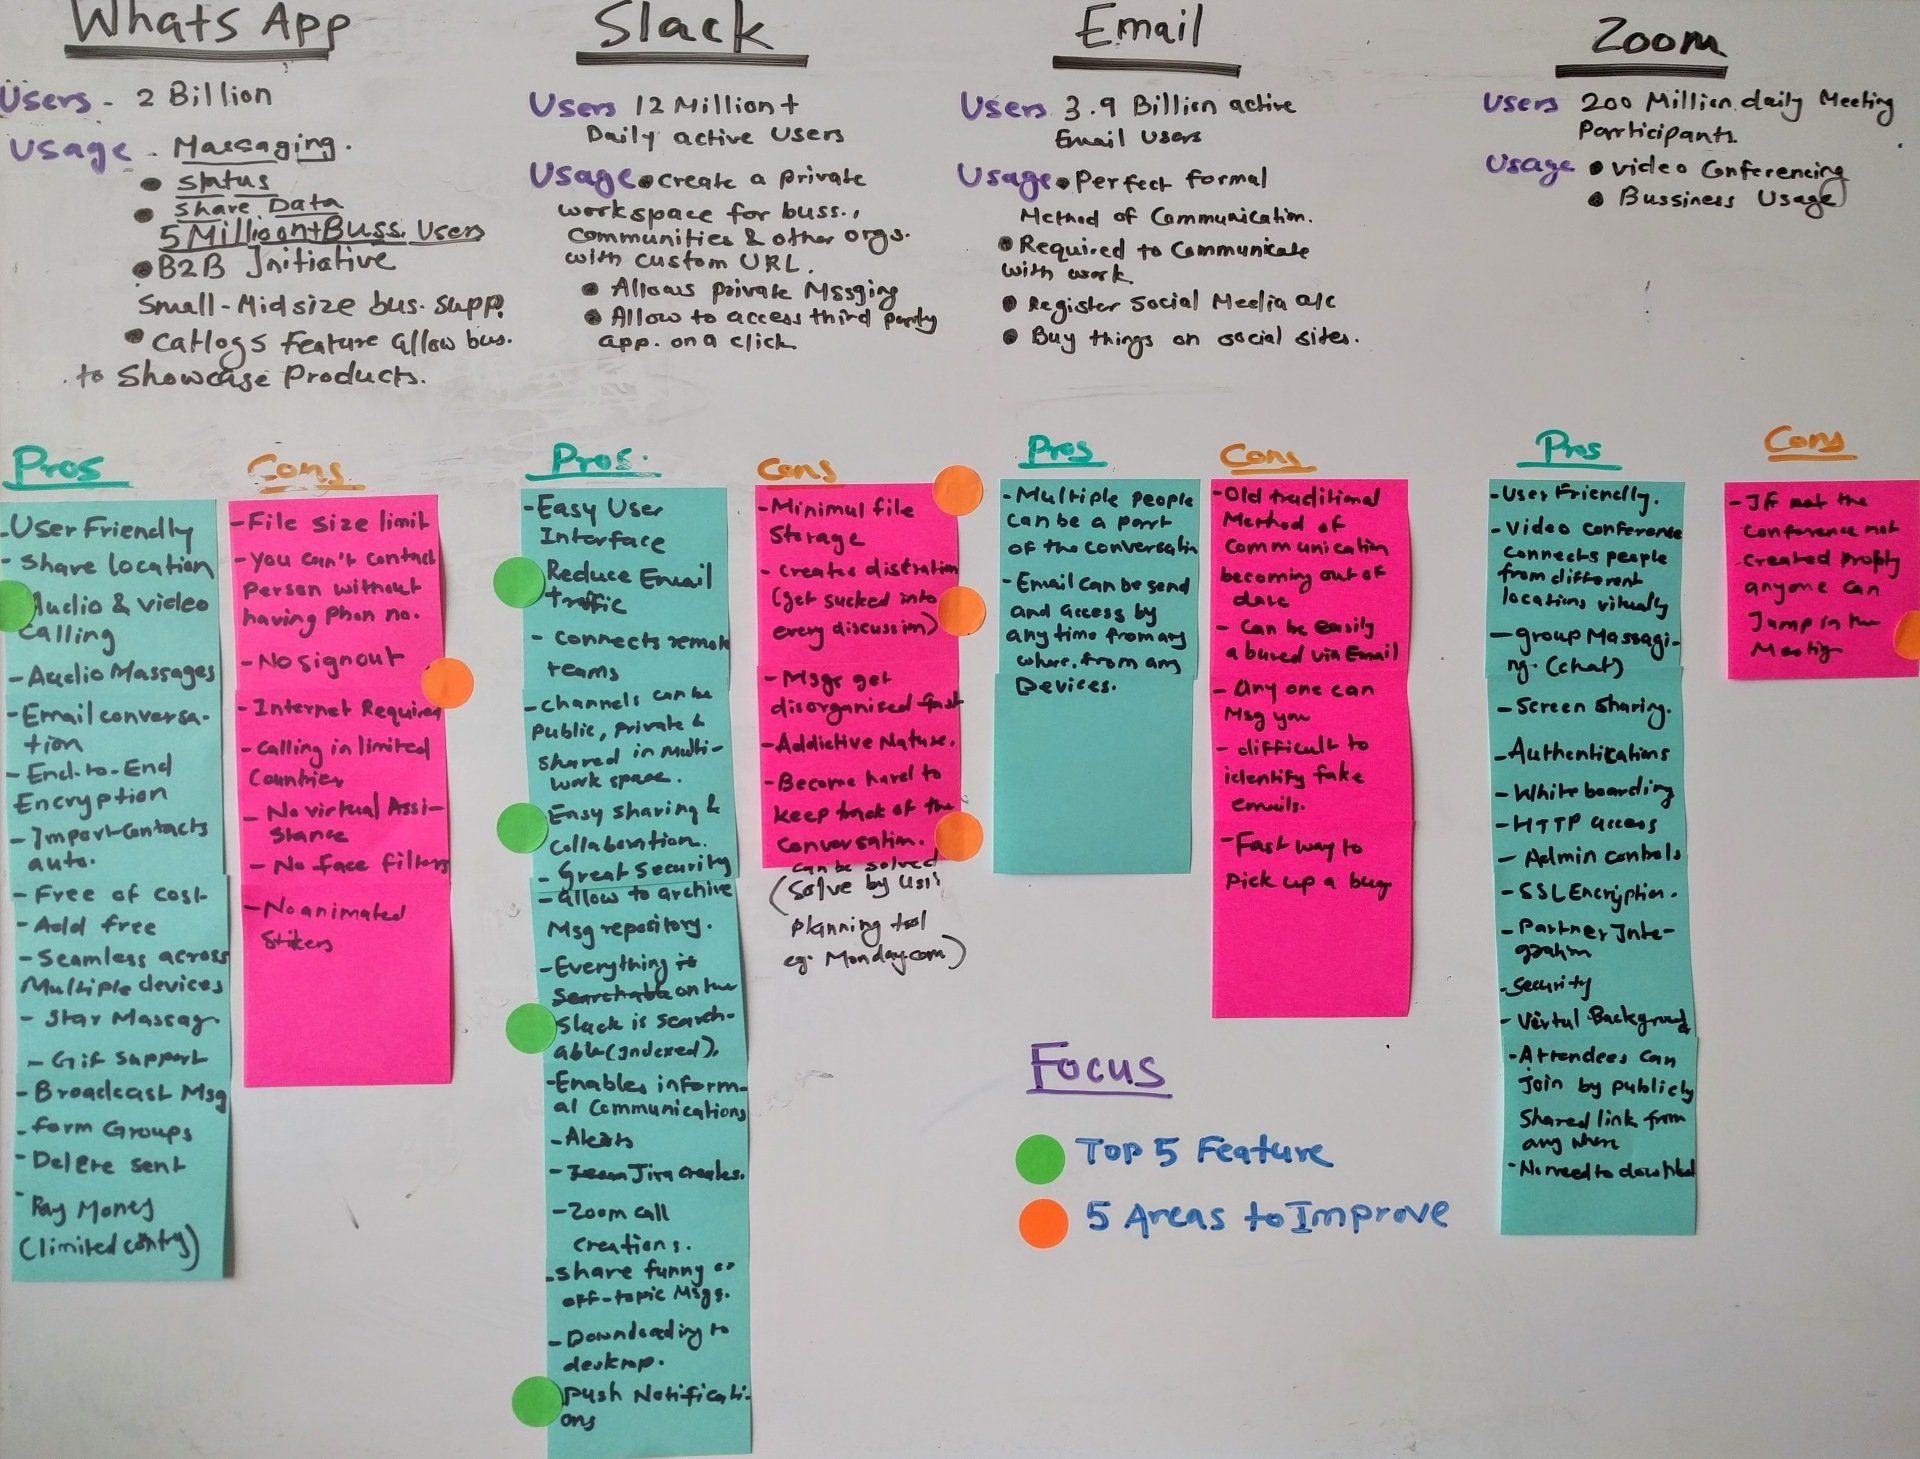 Whats App
Users - 2 Billion
Usage - Massaging.
• status
• Share Data
5 Million+Buss. Users
• B2B Initiative
Small-Midsize bus. supp.
• Catlogs feature allow bus.
to Showcase Products.
Pros
- User Friendly
- Share location
Audio & video
calling
- Audio Massages
- Email conversa-
tion
- End-to-End
Encryption
- Import contacts
auto.
- Free of cost
- Add free
- Seamless across
Multiple devices
- Star Massag.
- Gif support
- Broadcast Msg
- form Groups
- Delete sent
- Pay Money
(limited contry)
Cons
- File size limit
- You can't contact
Person without
having Phon no.
- No signout
- Internet Required
- Calling in limited
Countries
- No virtual Assi-
stance
- No face filters
- No animated
Stikers
Slack
Users 12 Million+
Daily active Users
Usage • Create a private
workspace for buss.,
communities & other orgs.
with custom URL.
• Allows private Mssging
• Allow to access third party
app. on a click
Pros.
- Easy User
Interface
Reduce Email
traffic
- Connects remote
teams
- Channels can be
Public, Private &
shared in Multi-
work space.
Easy sharing &
collaboration.
- Great Security
- allow to archive
Msg repository.
- Everything is
Searchable on the
Slack is search-
able (indexed).
- Enables inform-
al Communications
- Alerts
- Jira creates.
- Zoom call
Creations.
- Share funny or
off-topic Msgs.
- Downloading to
desktop.
Push Notificati-
ons
Cons
- Minimul file
Storage
- Creates distration
(get sucked into
every discussion)
- Msgs get
disorganised fast
- Addictive Nature.
- Become hard to
keep track of the
Conversation.
can be solved
(Solve by
planning tool
eg. Monday.com)
Email
Users 3.9 Billion active
Email Users
Usage • Perfect formal
Method of Communication.
• Required to Communicate
with work
• Register Social Media a/c
• Buy things on social sites.
Pros
- Multiple people
Can be a part
of the conversation
- Email can be send
and access by
any time from any
where, from any
Devices.
Cons
- Old traditional
Method of
Communication
becoming out of
date
- Can be easily
abused via Email
- Any one can
Msg you
- difficult to
identify fake
emails.
- Fast way to
pick up a bug
Focus
Top 5 Feature
5 Areas to Improve
Zoom
Users 200 Million daily Meeting
Participants.
Usage • Video Conferencing
• Bussiness Usage
Pros
- User Friendly.
- Video Conference
connects people
from different
locations vitually
- group Massagi-
ng. (chat)
- Screen Sharing.
- Authentications
- White boarding
- HTTP access
- Admin controls
- SSL Encryption.
- Partner Inte-
gration
- Security
- Virtul Background
- Attendees can
Join by publicly
Shared link from
any where
- No need to download
Cons
- If not the
Conference not
created proply
anyone can
Jump in the
Meeting